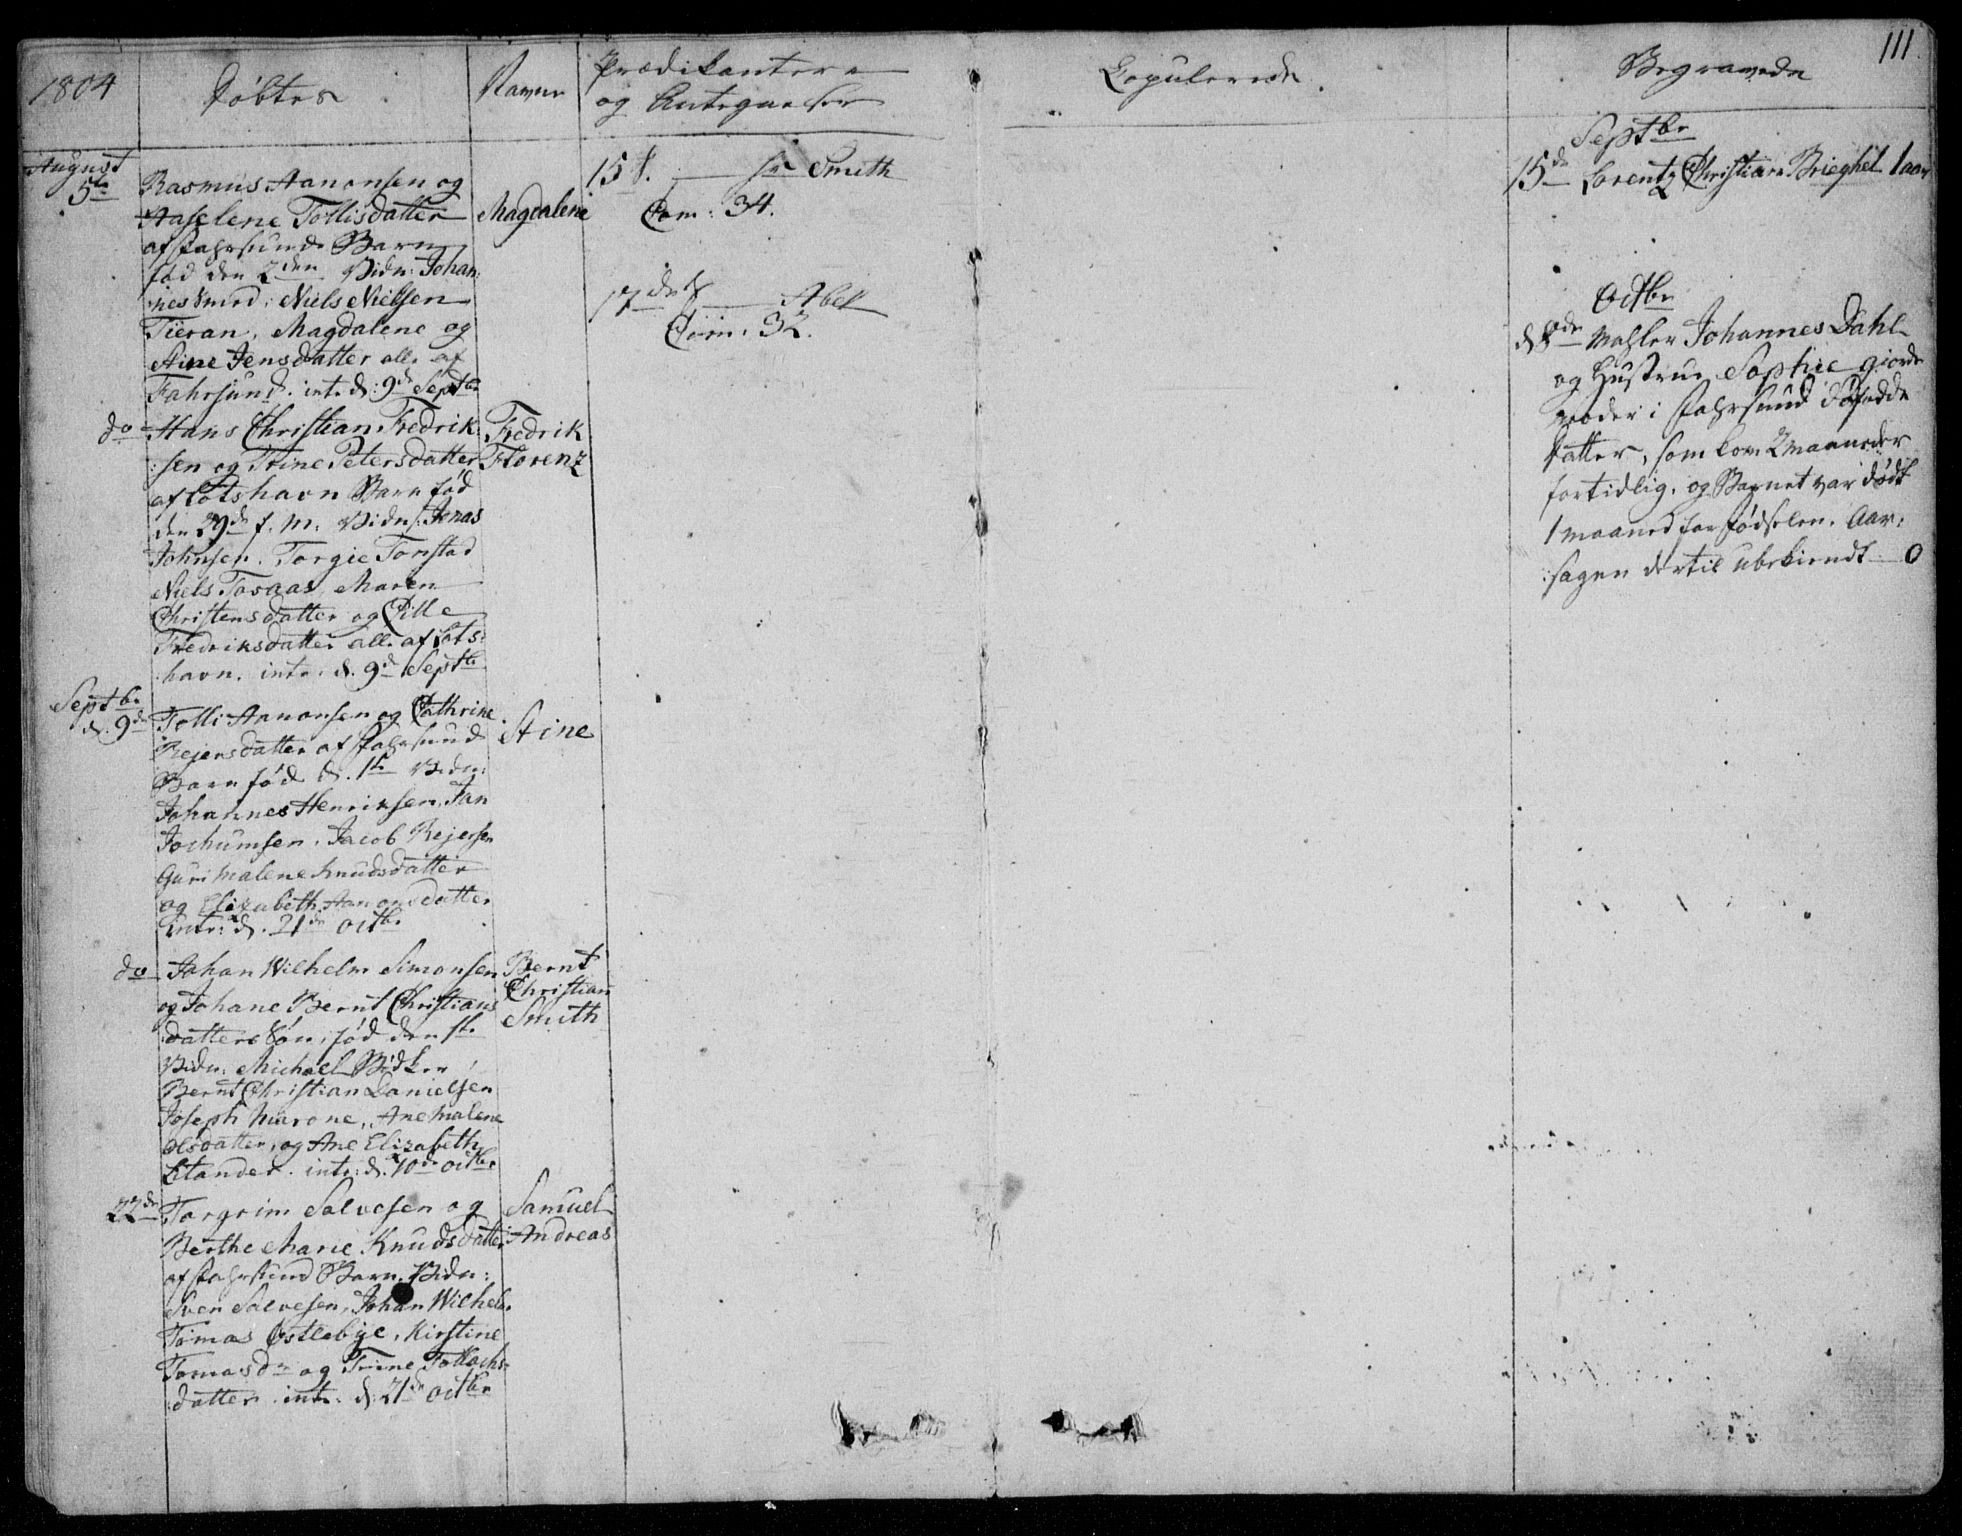 111.
1804
Døbtes
Navne
Prædikantere
og Antegnelser
Copulerede
Begravede
August
5te
Rasmus Aanonsen og
Aaselene Tollisdatter
af Fahrsunds Barn
fød den 2den Vidn: Johan:
:nes Smed: Niels Nielsen
Magdalene og
Stine Jensdatter alle af
Fahrsund. int. d: 9de Septbr
Magdalene
do
Hans Christian Fredrik:
:sen og Trine Petersdatter
af Lotshavn Barn fød
den 29de f. M. Vidn: Jonas
Johnsen. Torgie Tonstad
Niels Maren
Christensdatter og Pille
Fredriksdatter alle af Lots:
havn. intr: d. 9de Septbr
Fredrik
Florenz
Septbr
d. 9de
Tolli Aanonsen og Cathrine
Rejersdatter af Fahrsund
Barn fød d. 1ste Vidn:
Johannes Henriksen, Jan
Jochumsen. Jacob Rejersen
Guri Malene Knudsdatter
og Elizabeth Aanonsdatter
intr: d. 21de Octbr
Stine
do
Johan Wilhelm Simonsen
og Johane Bernt Christians
datters Søn, fød den 1ste
Vidn: Michael
Bernt Christian Danielsen
Joseph Marone, Ane Malene
Olsdatter, og Ane Elizabeth
intr: d. 10de Octbr
Bernt
Christian
Smith
22de
Torgrim Salvesen og
Berthe Marie Knudsdatter
af Fahrsund Barn. Vidn:
Sven Salvesen, Johan Wilhelm
Tomas Østlebye, Kirstine
Tomasdr og Trine
:datter. intr: d. 21de Octbr
Samuel
Andreas
15 f. — Hr Smith
Com: 34.
17de f — Abel
Com: 32.
Septbr
15de Lorentz Christian Brieghel 1 aar
Octbr
d 8de Mahler Johannes Dahl
og Hustrue Sophie
i Fahrsund dødfødde
Datter, som kom 2 maaneder
fortidlig. og Barnet var dødt
1 maaned før fødselen. Aar:
:sagen dertil ubekiendt — 0